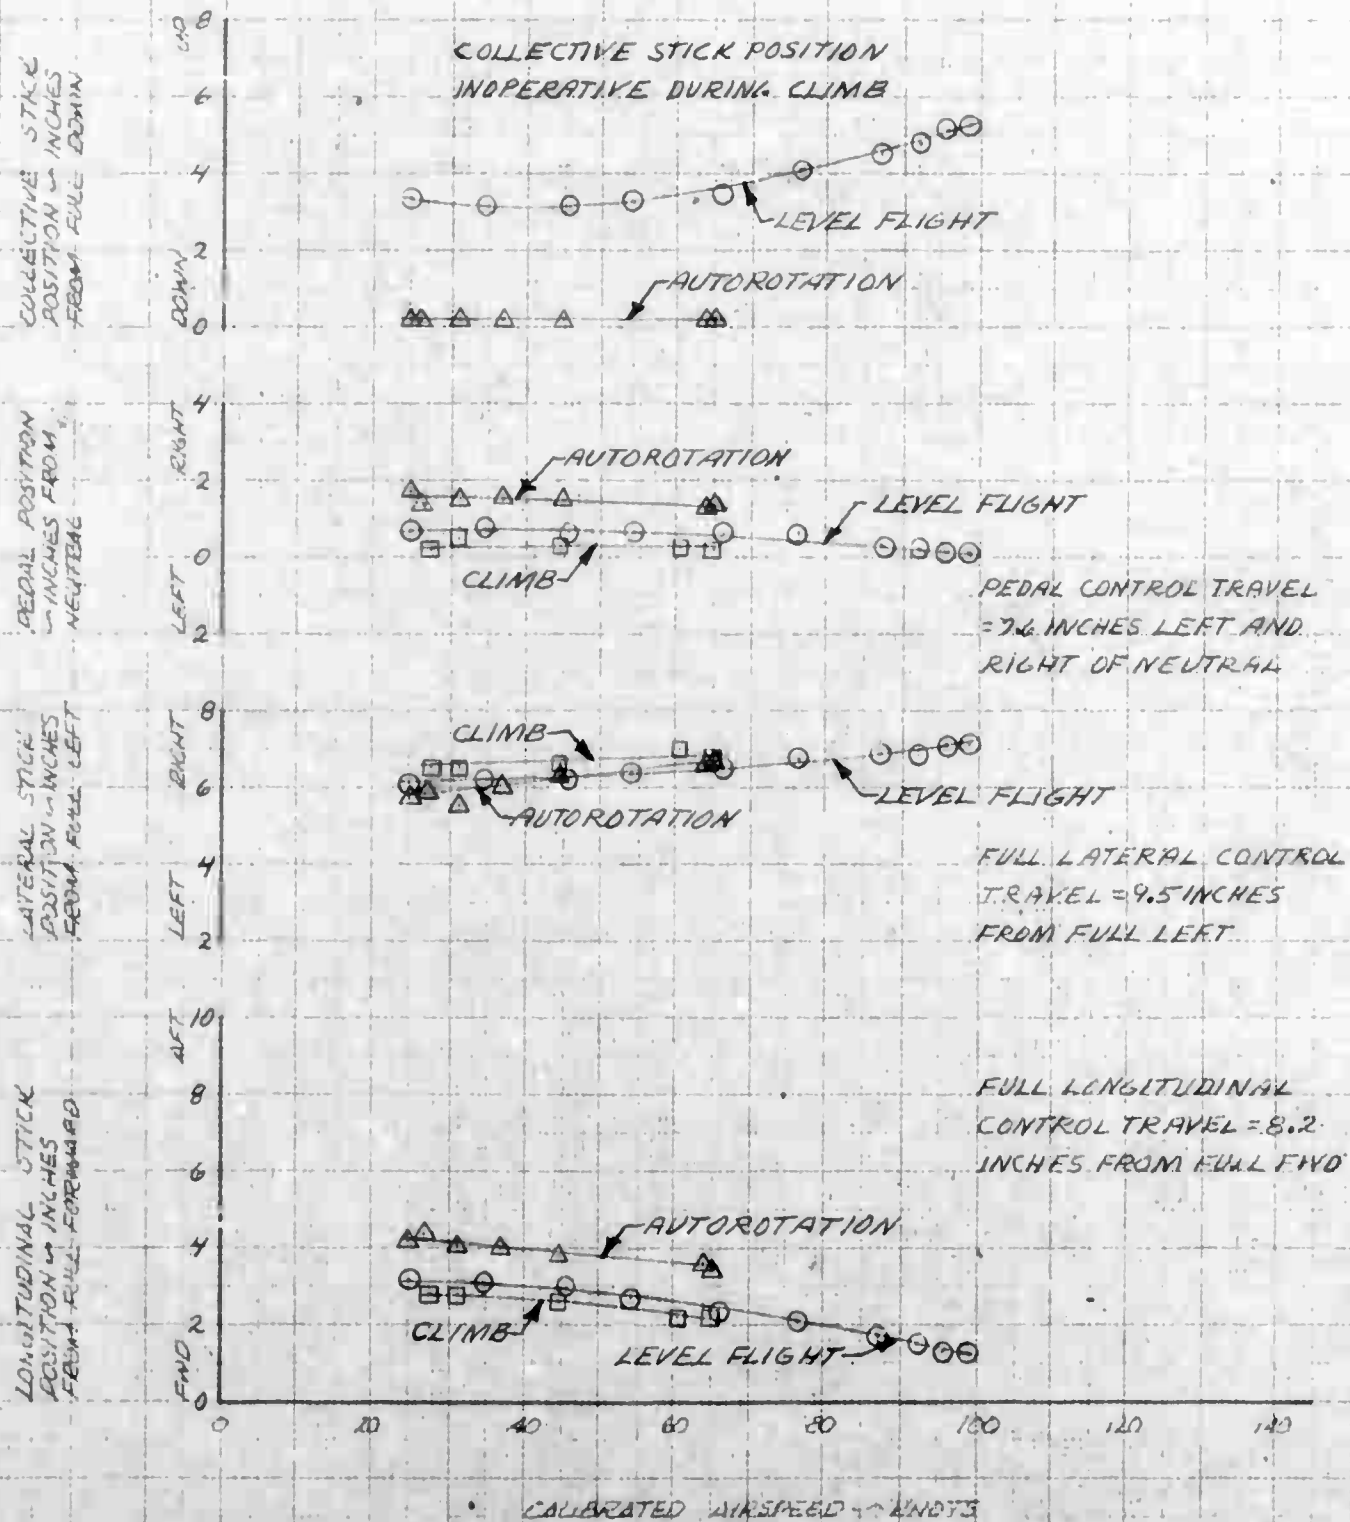 COLLECTIVE STICK
POSITION ~ INCHES
FROM FULL DOWN
UP
DOWN
8
6
4
2
0
COLLECTIVE STICK POSITION
INOPERATIVE DURING CLIMB
LEVEL FLIGHT
AUTOROTATION
PEDAL POSITION
~ INCHES FROM
NEUTRAL
RIGHT
LEFT
4
2
0
2
AUTOROTATION
LEVEL FLIGHT
CLIMB
PEDAL CONTROL TRAVEL
INCHES LEFT AND
RIGHT OF NEUTRAL
LATERAL STICK
POSITION ~ INCHES
FROM FULL LEFT
RIGHT
LEFT
8
6
4
2
CLIMB
AUTOROTATION
LEVEL FLIGHT
FULL LATERAL CONTROL
TRAVEL = 9.5 INCHES
FROM FULL LEFT
LONGITUDINAL STICK
POSITION ~ INCHES
FROM FULL FORWARD
AFT
FWD
10
8
6
4
2
0
FULL LONGITUDINAL
CONTROL TRAVEL = 8.2
INCHES FROM FULL FWD
AUTOROTATION
CLIMB
LEVEL FLIGHT
0 20 40 60 80 100 120 140
CALIBRATED AIRSPEED ~ KNOTS